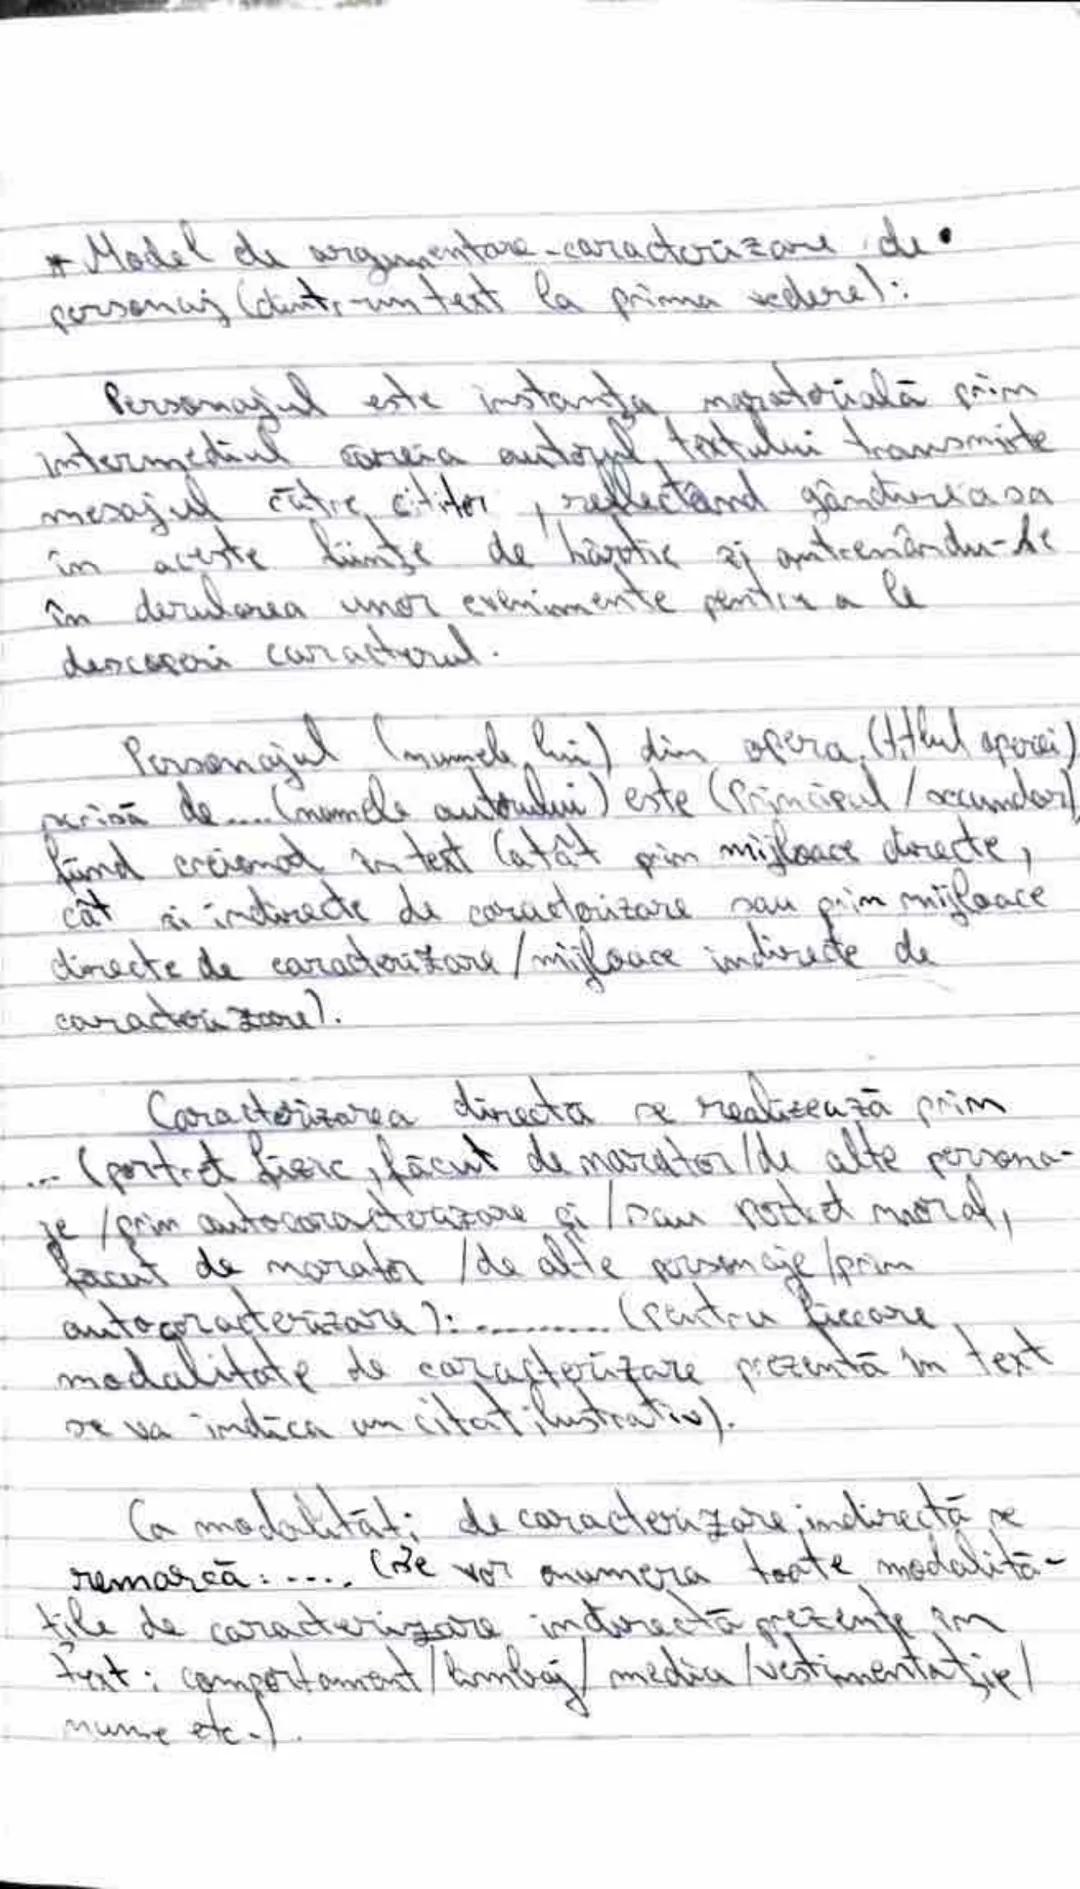 * Model de argumentare-caracterizare de
personaj (dintr-un text la prima vedere):
Personajul este instanța naratorială prin
intermediul căreia autorul textului transmite
mesajul către cititor, reflectând gândirea sa
în aceste ființe de hârtie și antrenându-le
în derularea unor evenimente pentru a le
descoperi caracterul.
Personajul (numele lui) din opera (titlul operei)
scrisă de .... (numele autorului) este (principal / secundar)
fiind creionat în text (atât prin mijloace directe,
cât și indirecte de caracterizare sau prin mijloace
directe de caracterizare / mijloace indirecte de
caracterizare).
Caracterizarea directă se realizează prin
... (portret fizic, făcut de narator / de alte persona-
je / prin autocaracterizare și / sau portret moral,
făcut de narator / de alte personaje / prin
autocaracterizare): .......... (pentru fiecare
modalitate de caracterizare prezentă în text
se va indica un citat ilustrativ).
Ca modalități de caracterizare indirectă se
remarcă: .... (Se vor enumera toate modalită-
țile de caracterizare indirectă prezente în
text: comportament / limbaj / mediu / vestimentație /
nume etc.).